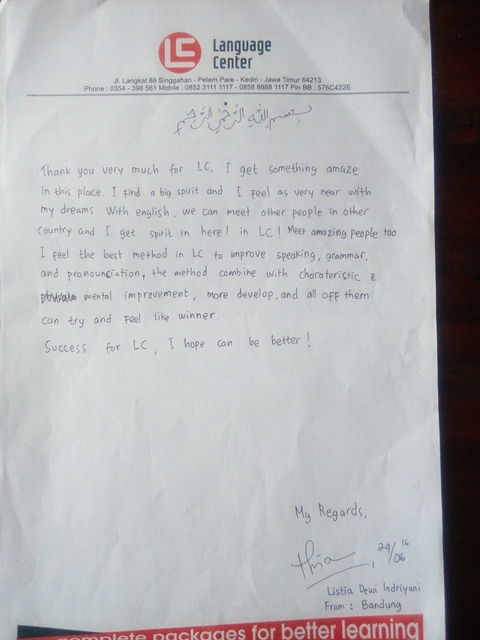 LC
Language
Center
Jl. Langkat 88 Singgahan - Pelem Pare - Kediri - Jawa Timur 64213
Phone : 0354 - 396 561 Mobile : 0852 3111 1117 - 0858 8888 1117 Pin BB : 576C422E
بسم الله الرحمن الرحيم
Thank you very much for LC. I get something amaze
in this place. I find a big spirit and I feel as very near with
my dreams. With english, we can meet other people in other
country and I get spirit in here! in LC! Meet amazing people too.
I feel the best method in LC to improve speaking, grammar,
and pronounciation, the method combine with charoteristic &
mental improvement, more develop, and all off them
can try and feel like winner.
Success for LC, I hope can be better!
My Regards,
24/06 16
Listia Dewi Indriyani
From : Bandung
complete packages for better learning